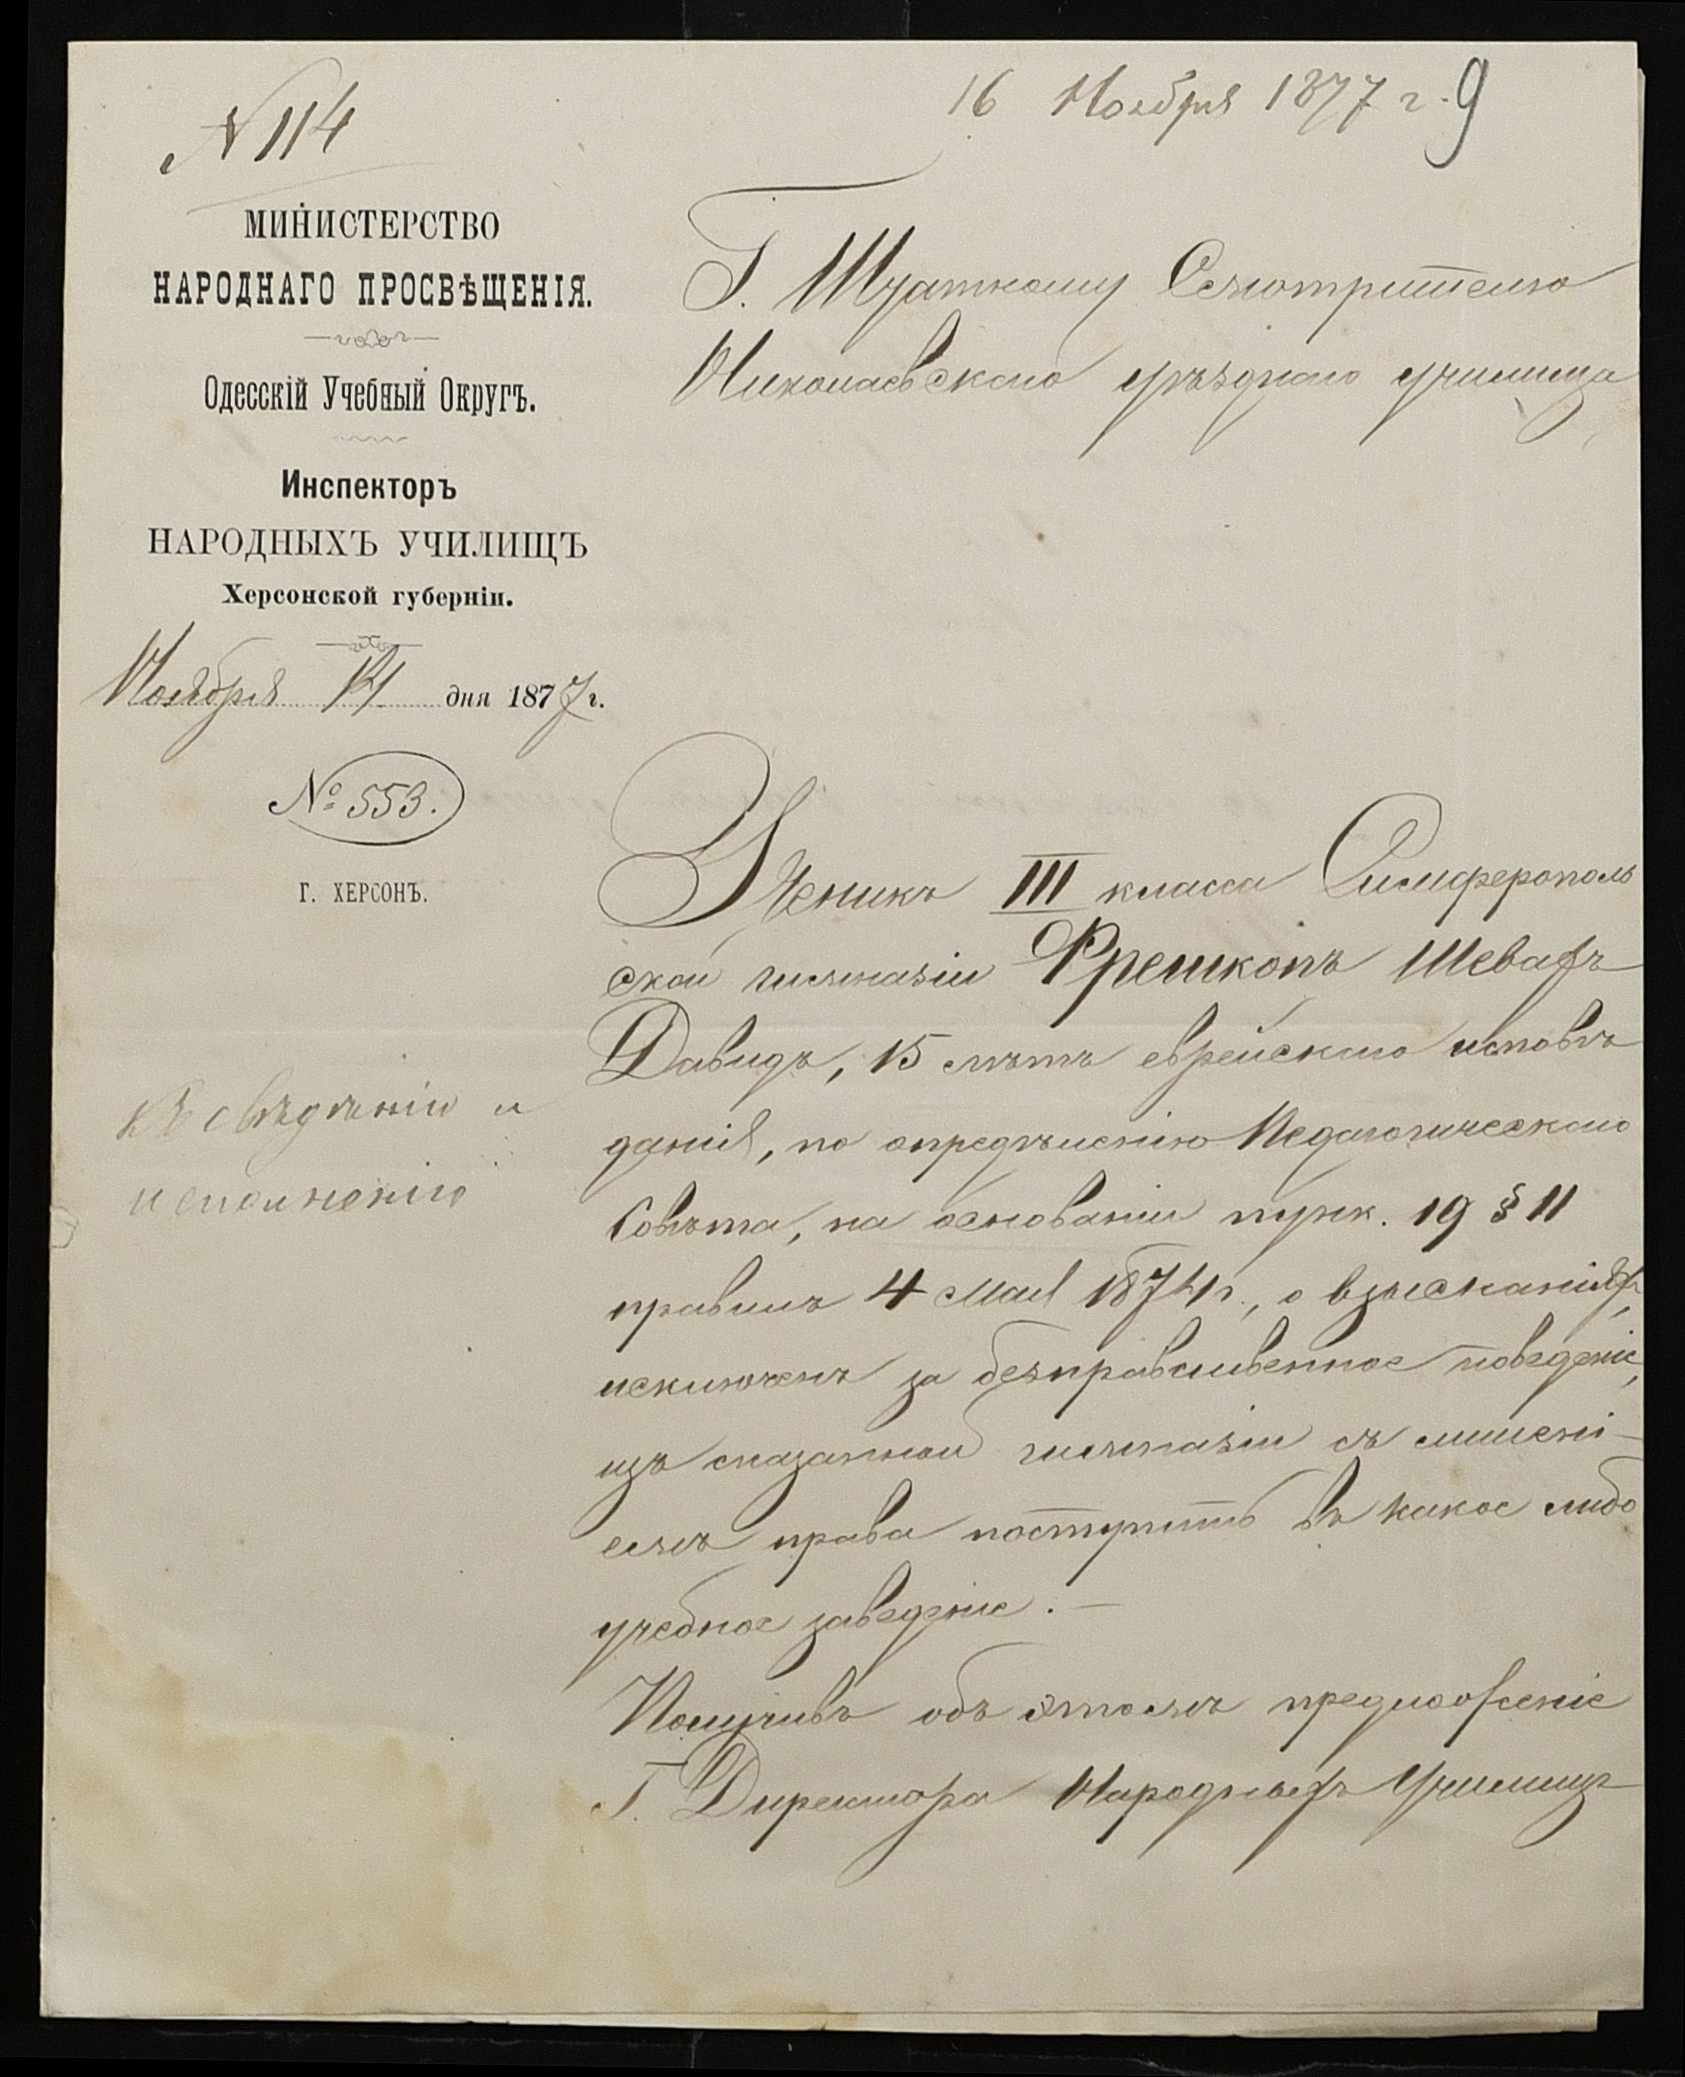 N 114
16 Ноября 1877 г.
9
МИНИСТЕРСТВО
НАРОДНАГО ПРОСВѢЩЕНІЯ.
Одесскій Учебный Округъ.
Инспекторъ
НАРОДНЫХЪ УЧИЛИЩЪ
Херсонской губерніи.
Ноября 14 дня 1877 г.
№ 553.
Г. ХЕРСОНЪ.
Къ свѣдѣнію и
исполненію
Г. Штатному Смотрителю
Николаевскаго уѣзднаго училища
Ученикъ III класса Симферополь
ской гимназіи Фрешкопъ Шевахъ
Давидъ, 15 лѣтъ еврейскаго исповѣ
данія, по опредѣленію Педагогическаго
Совѣта, на основаніи пунк. 19 § 11
правилъ 4 Мая 1874 г., о взысканіяхъ,
исключенъ за безнравственное поведеніе,
изъ сказанной гимназіи съ лишені-
емъ права поступить въ какое либо
учебное заведеніе. —
Получивъ объ этомъ предложеніе
Г. Директора Народныхъ Училищъ